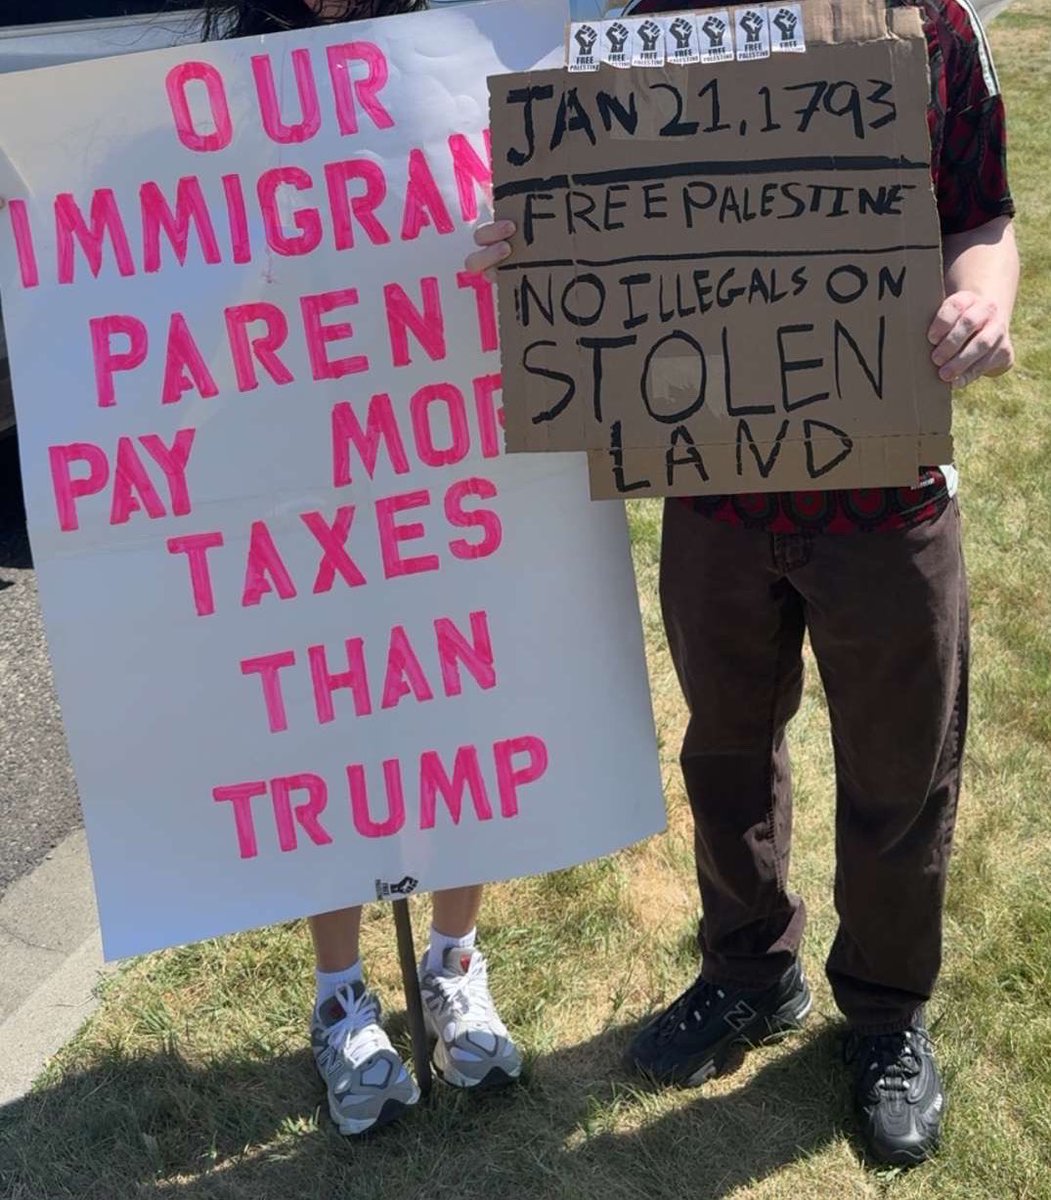 OUR
IMMIGRAN
PARENT
PAY MOR
TAXES
THAN
TRUMP
FREE PALESTINE
FREE PALESTINE
FREE PALESTINE
FREE PALESTINE
FREE PALESTINE
FREE PALESTINE
FREE PALESTINE
JAN 21, 1793
FREE PALESTINE
NO ILLEGALS ON
STOLEN
LAND
FREE PALESTINE
N